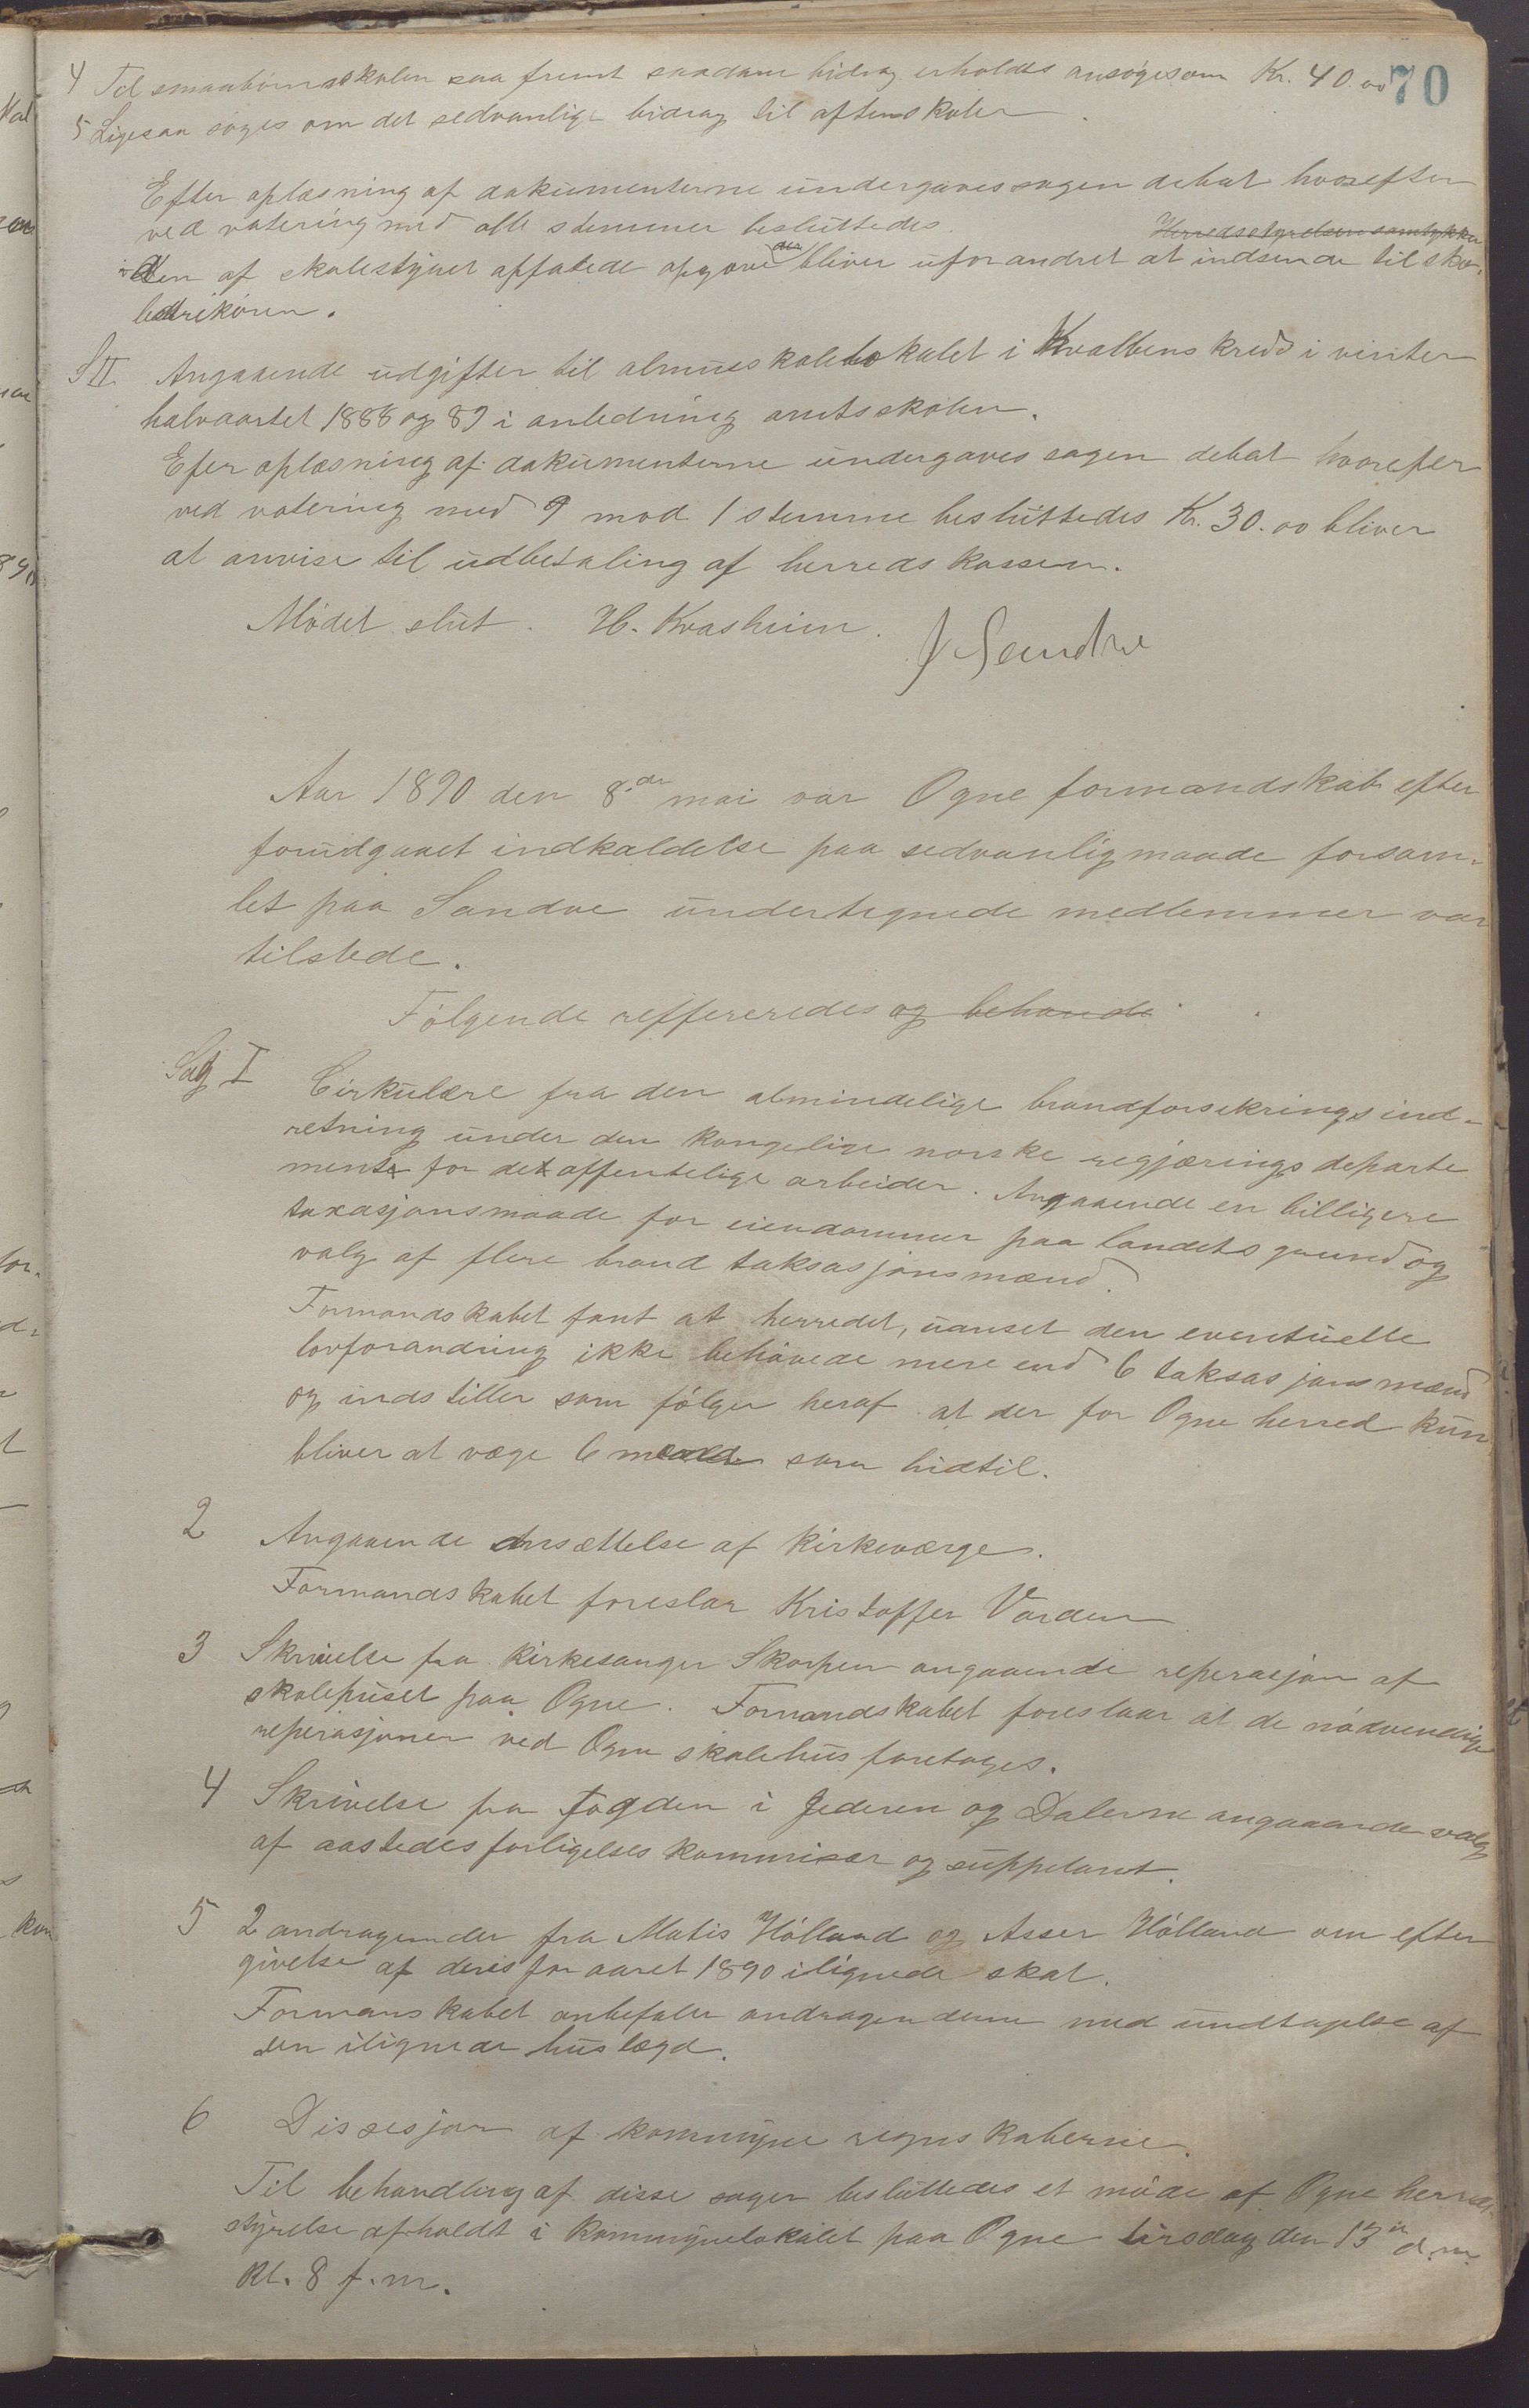 70
4 Til smaabørnsskolen saa fremt saadane bidrag erholdes ansøges om Kr. 40.00
5 Ligesaa søges om det sedvanlige bidrag til aftenskoler
Efter oplæsning af dokumenterne undergaves sagen debat hvorefter
ved votering med alle stemmer besluttedes. Herredsstyrelsen samtykker
den af skolestyret affatede opgave bliver uforandret at indsende til sko-
ledirikøren.
S II. Angaaende udgifter til almueskolelokalet i Kvalbens kreds i vinter
halvaartet 1888 og 89 i anledning amtsskolen.
Efter oplæsning af dokumenterne undergaves sagen debat hvorefter
ved votering med 9 mod 1 stemme besluttedes Kr. 30.00 bliver
at anvise til udbetaling af herredskassen.
Mødet slut. H. Kvasheim. J Sandve
Aar 1890 den 8de mai var Ogne formandskab efter
forudgaaet indkaldelse paa sedvanlig maade forsam-
let paa Sandve undertegnede medlemmer var
tilstede.
Følgende reffereredes og behande
Sag I Cirkulære fra den almindelige brandforsekringsind-
retning under den kongelige norske regjærings departe
ment for det offentelige arbeider. Angaaende en billigere
taxasjonsmaade for eiendommer paa landets grund og
valg af flere brand taksasjonsmænd.
Formandskabet fant at herredet, uanset den eventuelle
lovforandring ikke behøvede mere end 6 taksasjonsmænd
og indstiller som følger heraf at der for Ogne herred kun
bliver at væge 6 mænd som hidtil.
2 Angaaende Ansættelse af kirkeværge.
Formandskabet foreslar Kristoffer Varden
3 Skrivelse fra kirkesanger Skorpen angaaende reperasjon af
skolehuset paa Ogne. Formandskabet foreslaar at de nødvendige
reperasjoner ved Ogne skolehus foretages.
4 Skrivelse fra fogden i Jederen og Dalerne angaaende valg
af aastedesforligelseskommisær og suppelant.
5 2 andragender fra Matis Hølland og Asser Hølland om efter
givelse af deres for aaret 1890 ilignede skat.
Formanskabet anbefaler andragenderne med undtagelse af
den ilignede huslægd.
6 Dissesjon af kommune regnskaberne.
Til behandling af disse sager besluttedes et møde af Ogne herreds-
styrelse afholdt i kommunelokalet paa Ogne tirsdag den 13de d.m.
kl. 8 f.m.